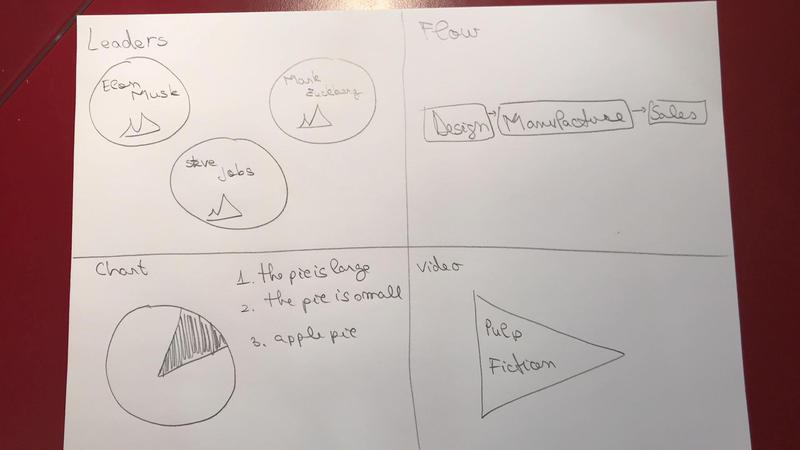 Leaders
Elon
Musk
Mark
Zuckberg
steve
Jobs
Flow
Design
Manufacture
Sales
Chart
1. the pie is large
2. the pie is small
3. apple pie
Video
Pulp
Fiction